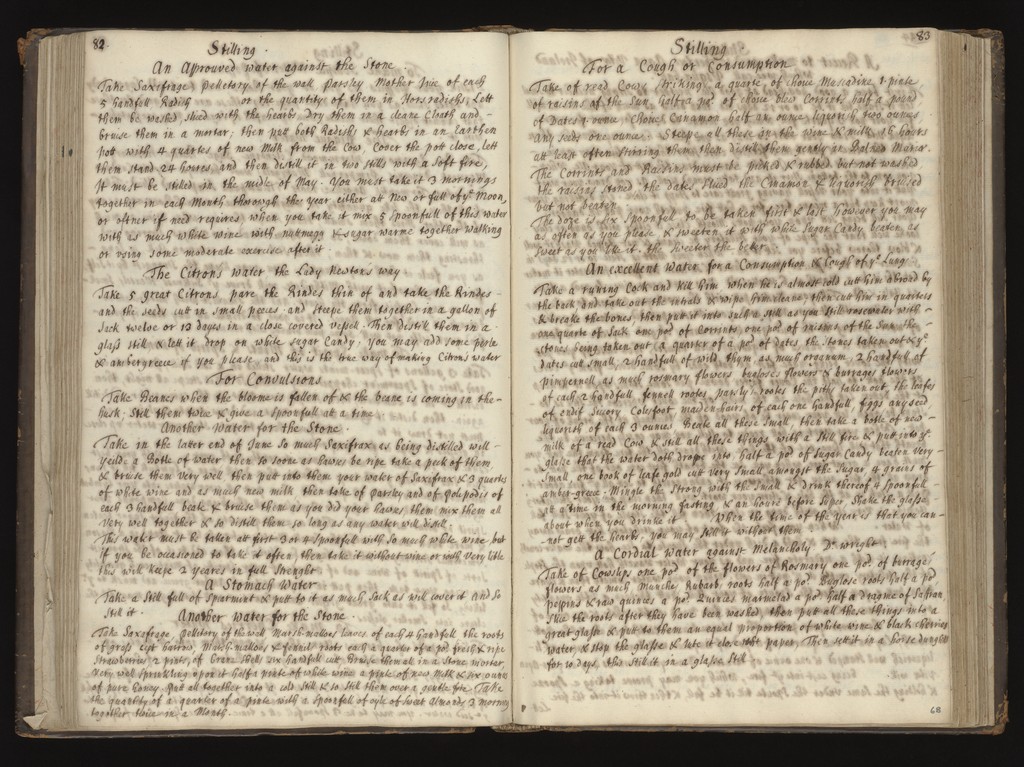 82
Stilling
An Aprouved water against the Stone
Take Saxefrage, pelletory of the wall parsley Mother time of each
5 handfull Radish or the quantity of them in Horsradishs, Lett
them be washed sliced with the hearbs Dry them in a cleane Cloath and
bruise them in a mortar; then putt both Radish & hearbs in an Earthen
pott with 4 quartes of new Milk from the Cow, Cover the pott close, lett
them stand 24 houres, and then distill it in two stills with a soft fire,
It must be stilled in the midle of May. You must take it 3 mornings
together in each Month through the year either at New or full of ye Moon,
or oftner if need requires when you take it mix 5 spoonfull of this water
with as much white wine with nuttmegg & sugar warme together walking
or vsing some moderate exercise after it.
The Citrons water the Lady Newtons way
Take 5 great Citrons pare the Rindes thin of and take the Rindes
and the seeds cut in small peeces and steepe them together in a gallon of
Sack twelve or 13 dayes in a close covered vessell. Then distill them in a
glass still & lett it drop on white sugar Candy, you may add some perle
& ambergreece if you please and this is the true way of making Citrons water
For Convulsions
Take Beanes when the bloome is fallen of & the beane is coming in the
husk. Still them twice & give a spoonfull at a time
Another Water for the Stone
Take in the latter end of June so much Saxifrax as being distilled will
yeilde a Botle of water then so soone as hawes be ripe take a peck of them
& bruise them very well then putt into them your water of Saxifrax & 3 quartes
of white wine and as much new milk then take of parsley and of Polipodis of
each 3 handfull beate & bruise them as you did your hawes then mix them all
very well together & so distill them so long as any water will distill
This water must be taken att first 3 or 4 spoonfull with so much white wine, but
if you be occasioned to take it often, then take it without wine or with very litle
this will keepe 2 yeares in full strenght
A Stomach Water
Take a Still full of Sparmint & putt to it as much Sack as will cover it and so
Still it.
Another water for the Stone.
Take Saxefrage, pellitory of the wall Marsh-mallows leaves of each 4 handfull the roots
of grass cept barrow, Marsh-mallows & fennill roots each a quarter of a pod fresh & ripe
Strawberries 2 pints, of snaile shells six handfull cut Bruise them all in a Stone mortar,
very well sprinkling upon it halfe a pinte of white wine a pinte of new Milk & six ounces
of pure honey. Put all together into a cold Still & so Still them over a gentle fire. Take
the quantity of a quarter of a pinte with a spoonfull of oyle of sweet Almonds 3 mornings
together twice in a Month.
83
Stilling
For a Cough or Consumption
Take of read Cows striking, a quarte of choice Muscadine 1 pinte
of raisins of the Sun halfe a pod of choice blew Corints half a pound
of Dates 2 ounce, Choice Cinnamon half an ounce, liquorish, two ounces
Any seeds one ounce. Steepe all these in the wine & milk, 16 hours
att least often stirring them, then distill them gently in Balneo Mariæ.
The Corrints and Raisins must be picked & rubbed but not washed
the raisins stoned the dates sliced the Cinamon & liquorish bruised
but not beaten.
The doze is six spoonfull to be taken first & last however you may
as often as you please & sweeten it with white Sugar Candy beaten as
sweet as you like it. the sweeter the beter
An excellent Water for a Consumption & Cough of ye Lung
Take a runing Cock and kill him when he is almost cold cutt him abroad by
the back and take out the intrals & wipe him cleane; then cutt him in quarters
& breake the bones, then putt it into such a still as you still rosewater with
one quarte of Sack one pod of Corrints one pod of raisins of the Sun the
stones being taken out a quarter of a pod of dates the stones taken out & ye
dates cutt small, 2 handfull of wild thym as much organum, 2 handfull of
pimpernell as much rosmary flowers bugloses flowers & burrages flowers
of each 2 handfull fennell rootes, parsly rootes the piths taken out, the leafes
of endif suicory Colesfoot maiden-haire of each one handfull, figgs any seed
liquorish of each 3 ounces. Beate all these small, then take a botle of new
milk of a read Cow & still all these things with a still fire & putt into ye
glasse that the water doth dropp into half a pod of sugar Candy beaten very
small, one book of leafe gold cutt very small amongst the sugar, 4 grains of
amber-greece. Mingle the strong with the small & drink thereof 4 spoonfull
att a time in the morning fasting & an houre before super. Shake the glasse
about when you drinke it When the time of the year is that you can-
not gett the hearbs, you may still it without them
A Cordial Water against Melancholy. Dr. Wright
Take of Cowslips one pod of the flowers of Rosmary one pod of burrage
flowers as much Munike Rubarb roots half a pod Buglose roots half a pod
peppins & raw quinces a pod Quinces marmelad a pod half a dragme of Safran
Slice the roots after they have been washed then putt all these things into a
great glasse & putt to them an equal proportion of white wine & black cherries
water, & stop the glasse & lute it close with paper. Then sett it in a horse dunghill
for 10 days, this Still it in a glasse Still
68